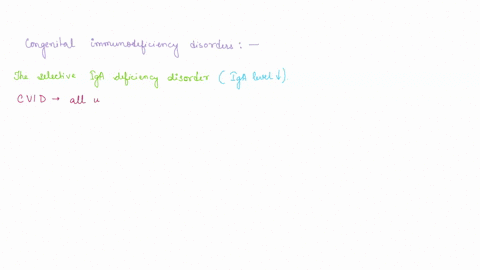 Congenital immunodeficiency disorders : —
The selective IgA deficiency disorder ( IgA level ↓)
CVID → all u